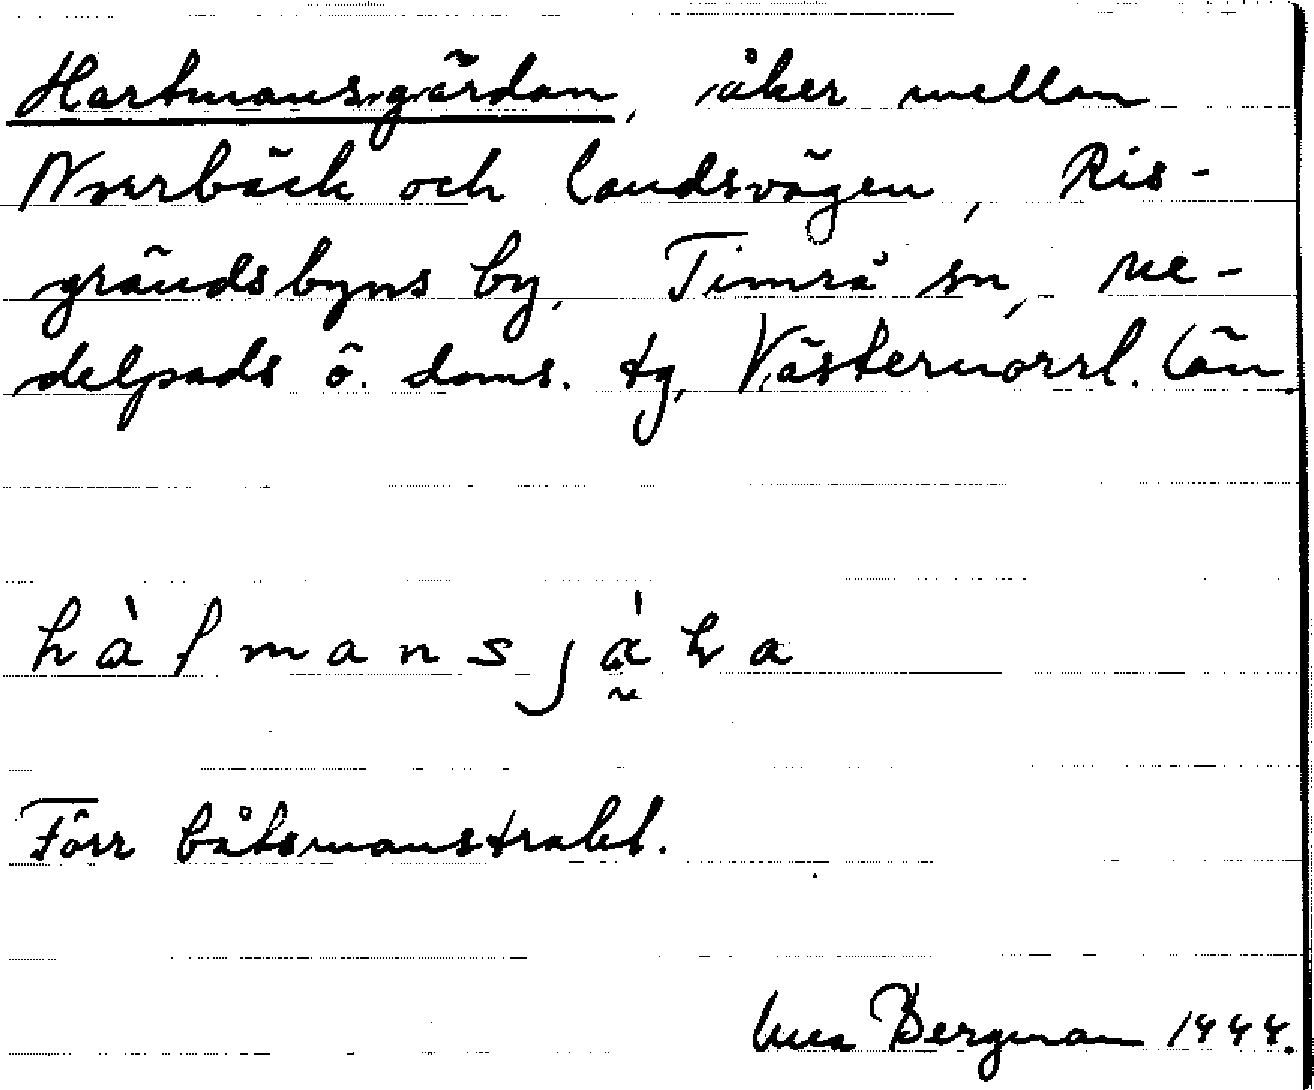 Hartmansgärdan, åker mellan
Norrbäck och landsvägen, Ris-
grändsbyns by, Timrå sn, Me-
delpads ö. doms. tg, Västernorrl. län.
hàʃmansjáɽa
Förr båtsmanstrakt.
Bergman 1944.